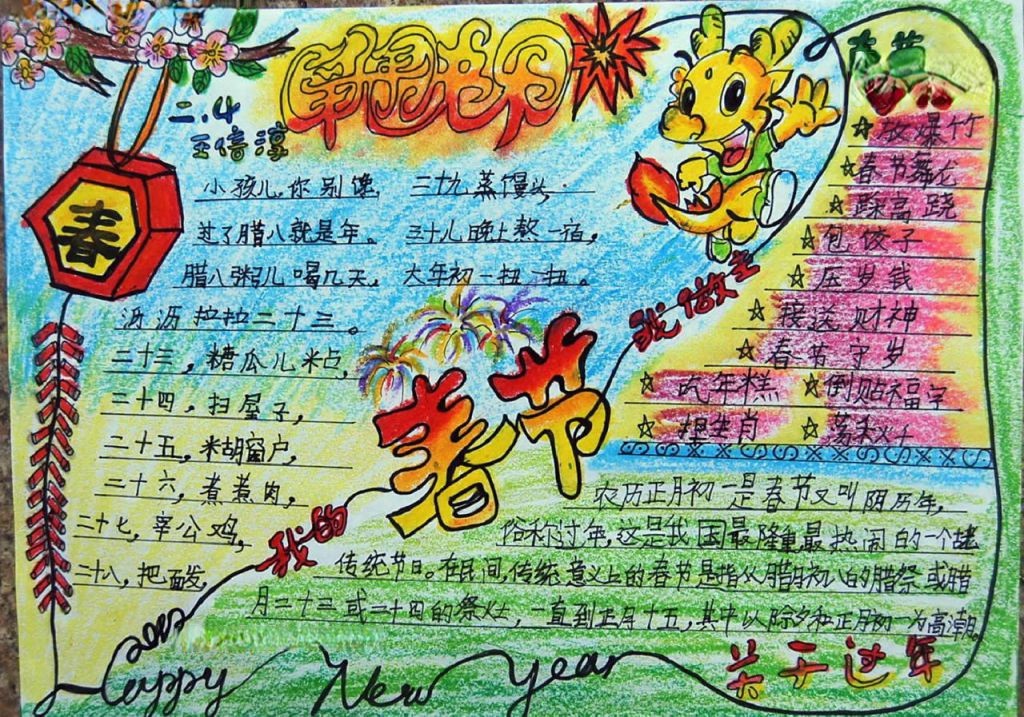 二.4
春
小孩儿你别馋
过了腊八就是年。
腊八粥儿喝几天,
沥沥拉拉二十三。
二十三,糖瓜儿粘,
二十四,扫屋子,
二十五,糊窗户,
二十六,煮煮肉,
二十七,宰公鸡,
二十八,把面发,
二十九蒸馒头.
三十儿晚上熬一宿,
大年初一扭一扭。
我的
春节
我做主
春节
☆放爆竹
☆春节舞龙
☆踩高跷
☆包饺子
☆压岁钱
☆接送财神
☆春节守岁
☆吃年糕 ☆倒贴福字
☆摆生肖 ☆
农历正月初一是春节又叫阴历年,
俗称过年,这是我国最隆重最热闹的一个
传统节日。在民间,传统意义上的春节是指从腊月初八的腊祭或腊
月二十三或二十四的祭灶,一直到正月十五,其中以除夕和正月初一为高潮。
关于过年
2012
Happy New Year